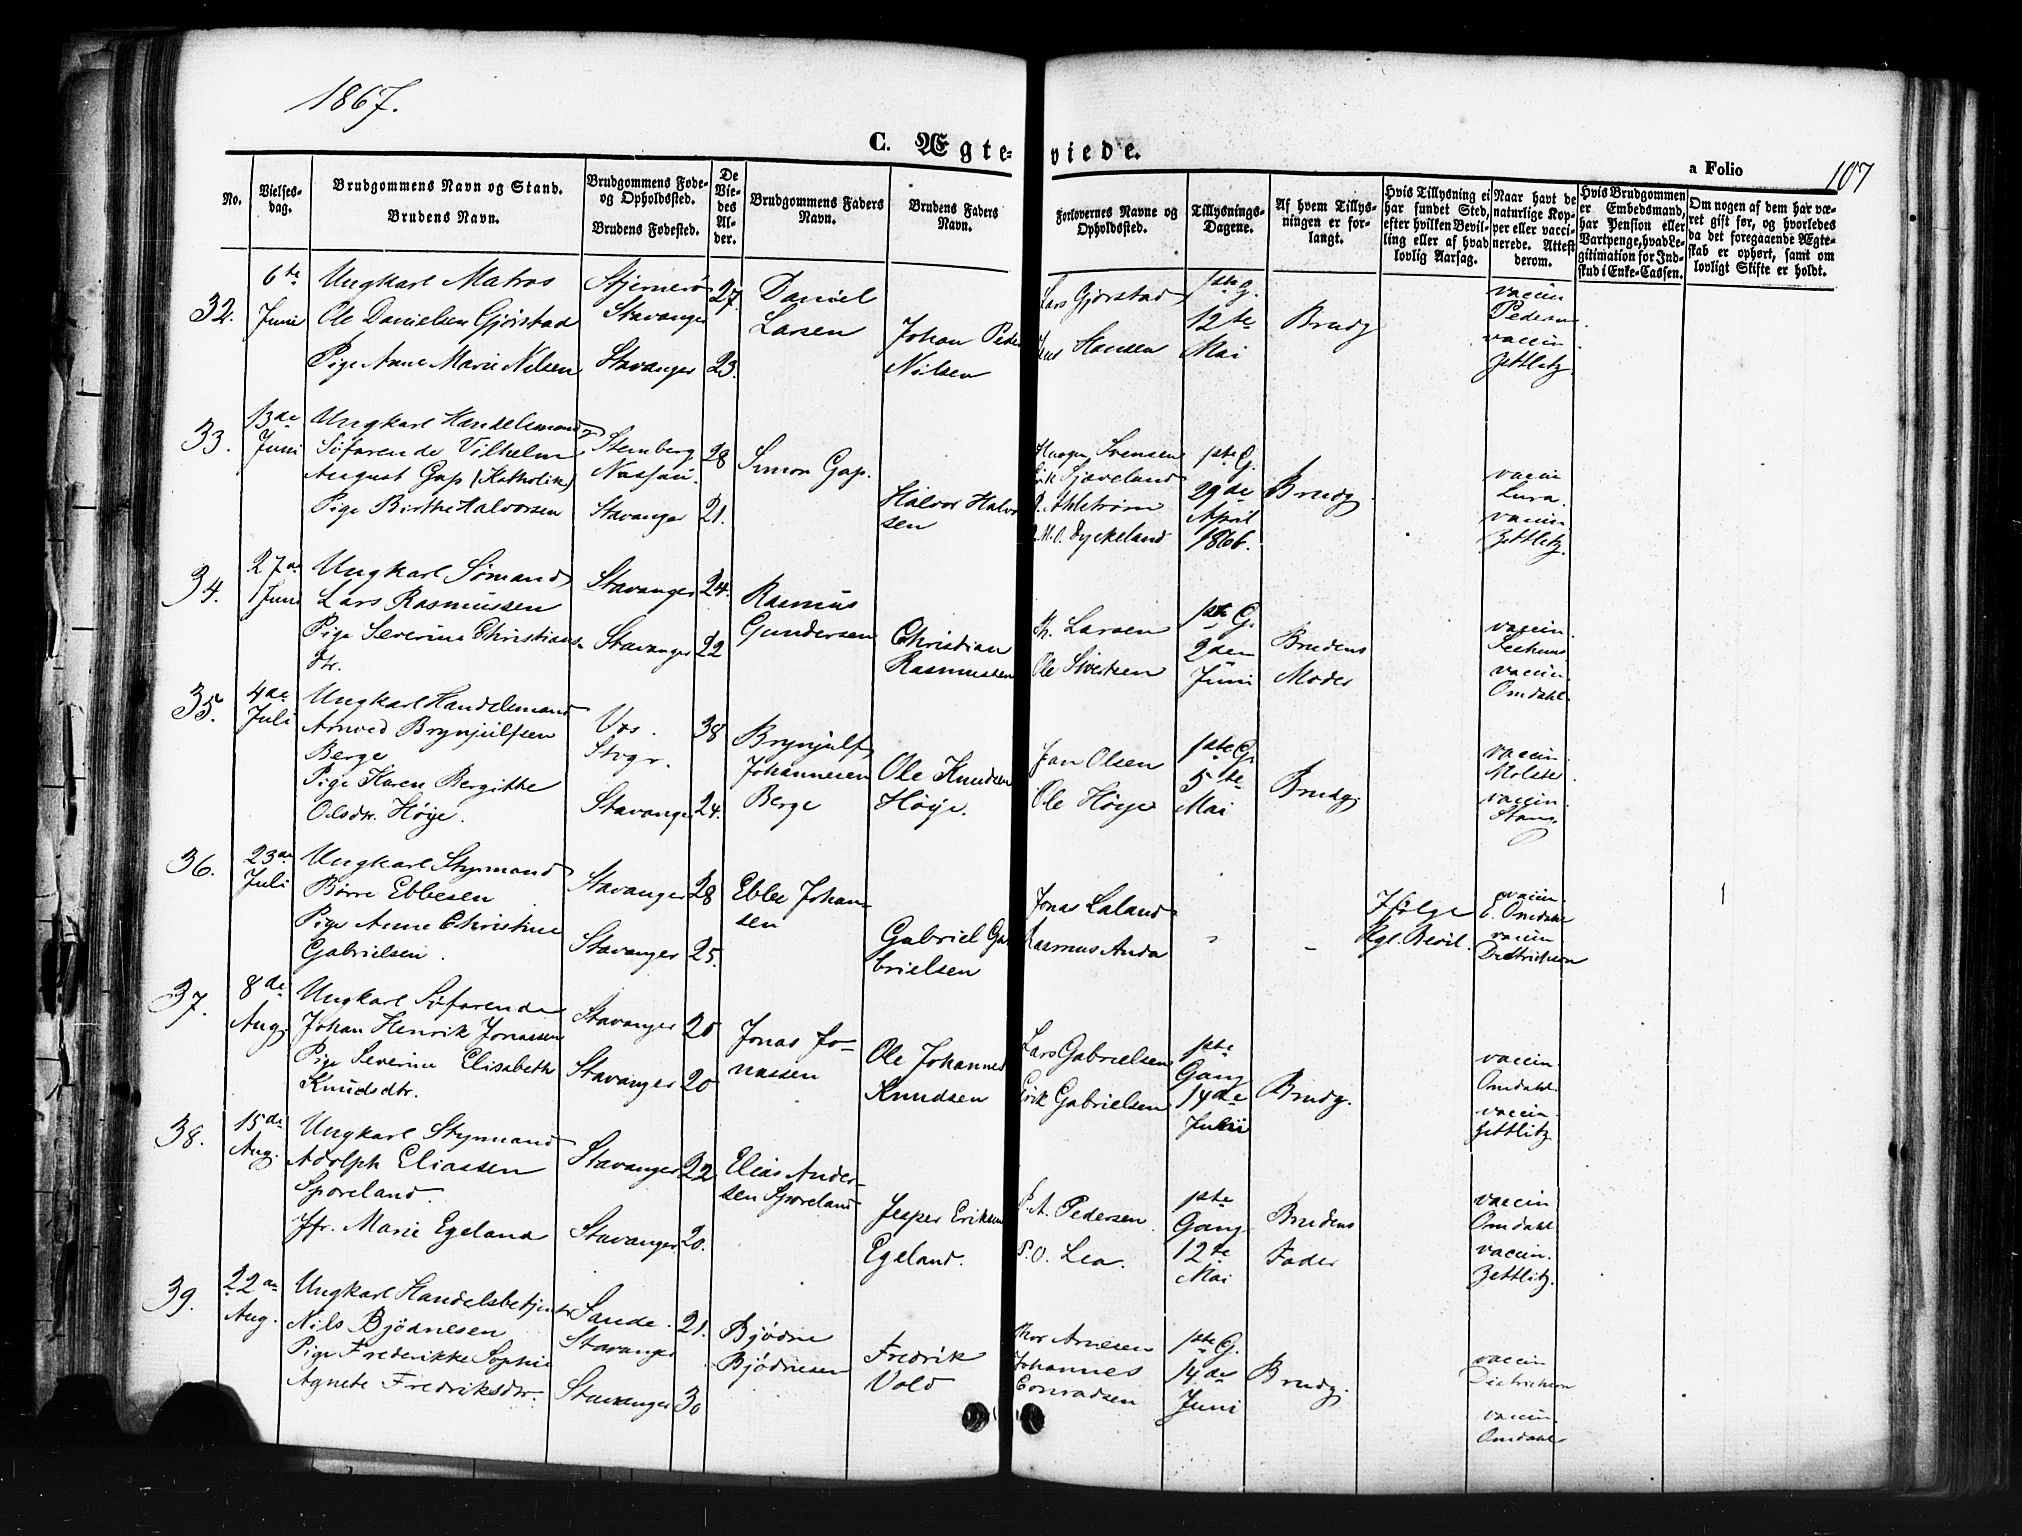 1867.
C. Ægteviede.
a Folio 107
No.
Vielsesdag.
Brudgommens Navn og Stand.
Brudens Navn.
Brudgommens Fødeog Opholdssted.
Brudens Fødested.
De Viedes Alder.
Brudgommens Faders Navn.
Brudens Faders Navn.
Forlovernes Navne og Opholdssted.
Tillysnings-Dagene.
Af hvem Tillysningen er forlangt.
Hvis Tillysning ei har fundet Sted, efter hvilken Bevilling eller af hvad lovlig Aarsag.
Naar havt de naturlige Kopper eller vaccinerede. Attest derom.
Hvis Brudgommen er Embedsmand, har Pension eller Vartpenge, hvad Legitimation for Indskud i Enke-Cassen.
Om nogen af dem har været gift før, og hvorledes da det foregaaende Ægteskab er ophørt, samt om lovligt Skifte er holdt.
32.
6te Juni
Ungkarl Matros
Ole Danielsen Gjörstad
Pige Anne Marie Nilsen
Stjernerö
Stavanger
Stavanger
27.
23.
Daniel
Larsen
Johan Peder
Nilsen
Lars Gjörstad
Jens Hansen
1ste G.
12te
Mai
Brudg
vaccin
Pedersen
vaccin
Zettlitz.
33.
13de
Juni
Ungkarl Handelsmand
Söfarende Vilhelm
August Gap (Katholik)
Pige Birthe Halvorsen
Sternberg
Nassau.
Stavanger
28
21.
Simon Gap.
Halvor Halvorsen
Haagen Svensen
Erik Sjæveland
Athlström
M. O. Dyckeland
1ste G.
29de
April
1866.
Brudg.
vaccin
Lura.
vaccin.
Zettlitz.
34.
27de
Juni
Ungkarl Sömand
Lars Rasmussen
Pige Severine Christiansdtr.
Stavanger
Stavanger
24.
22
Rasmus
Gundersen
Christian
Rasmussen
Th. Larsen
Ole Sivertsen
1ste G.
2den
Juni
Brudens
Moder
vaccin.
Seehuus
vaccin.
Omdahl.
35.
4de
Juli
Ungkarl Handelsmand
Arnved Brynjulfsen
Berge
Pige Karen Bergitte
Olsdtr. Höije.
Vos.
Stvgr.
Stavanger
38
24.
Brynjulf
Johannesen
Berge
Ole Knudsen
Höije.
Jan Olsen
Ole Höije
1ste G.
5te
Mai
Brudg.
vaccin
Moltke.
vaccin.
Stang.
36.
23de
Juli
Ungkarl Styrmand
Börre Ebbesen
Pige Anne Christine
Gabrielsen.
Stavanger
Stavanger
28
25.
Ebbe Johansen
Gabriel Gabrielsen
Jonas Laland
Rasmus Anda
Ifölge
Kgl. Bevil.
vaccin.
Omdahl
vaccin
Dietrichson
37.
8de
Aug.
Ungkarl Söfarende
Johan Henrik Jonassen
Pige Severine Elisabeth
Knudsdtr.
Stavanger
Stavanger
20
20
Jonas Jonassen
Ole Johannes
Knudsen
Lars Gabrielsen
Erik Gabrielsen
1ste
Gang
14de
Juli
Brudg.
vaccin
Omdahl.
vaccin.
Zettlitz.
38.
15de
Aug.
Ungkarl Styrmand
Adolph Eliassen
Sporeland.
Jfr. Marie Egeland
Stavanger
Stavanger
22
20.
Elias Andersen Sporeland
Jesper Eriksen
Egeland.
P. A. Pedersen
P. O. Lea.
1ste
Gang
12te
Mai
Brudens
Fader
vaccin
Omdahl
vaccin.
Zettlitz.
39.
22de
Aug.
Ungkarl Handelsbetjent
Nils Bjödnesen
Pige Frederikke Sophie
Agnete Fredriksdtr.
Sande.
Stavanger
Stavanger
21.
30
Bjödne
Bjödnesen
Fredrik
Vold
Thor Arnesen
Johannes
Conradsen
1ste G.
14de
Juni
Brudg.
vaccin
Dietrichson
vaccin.
Omdahl